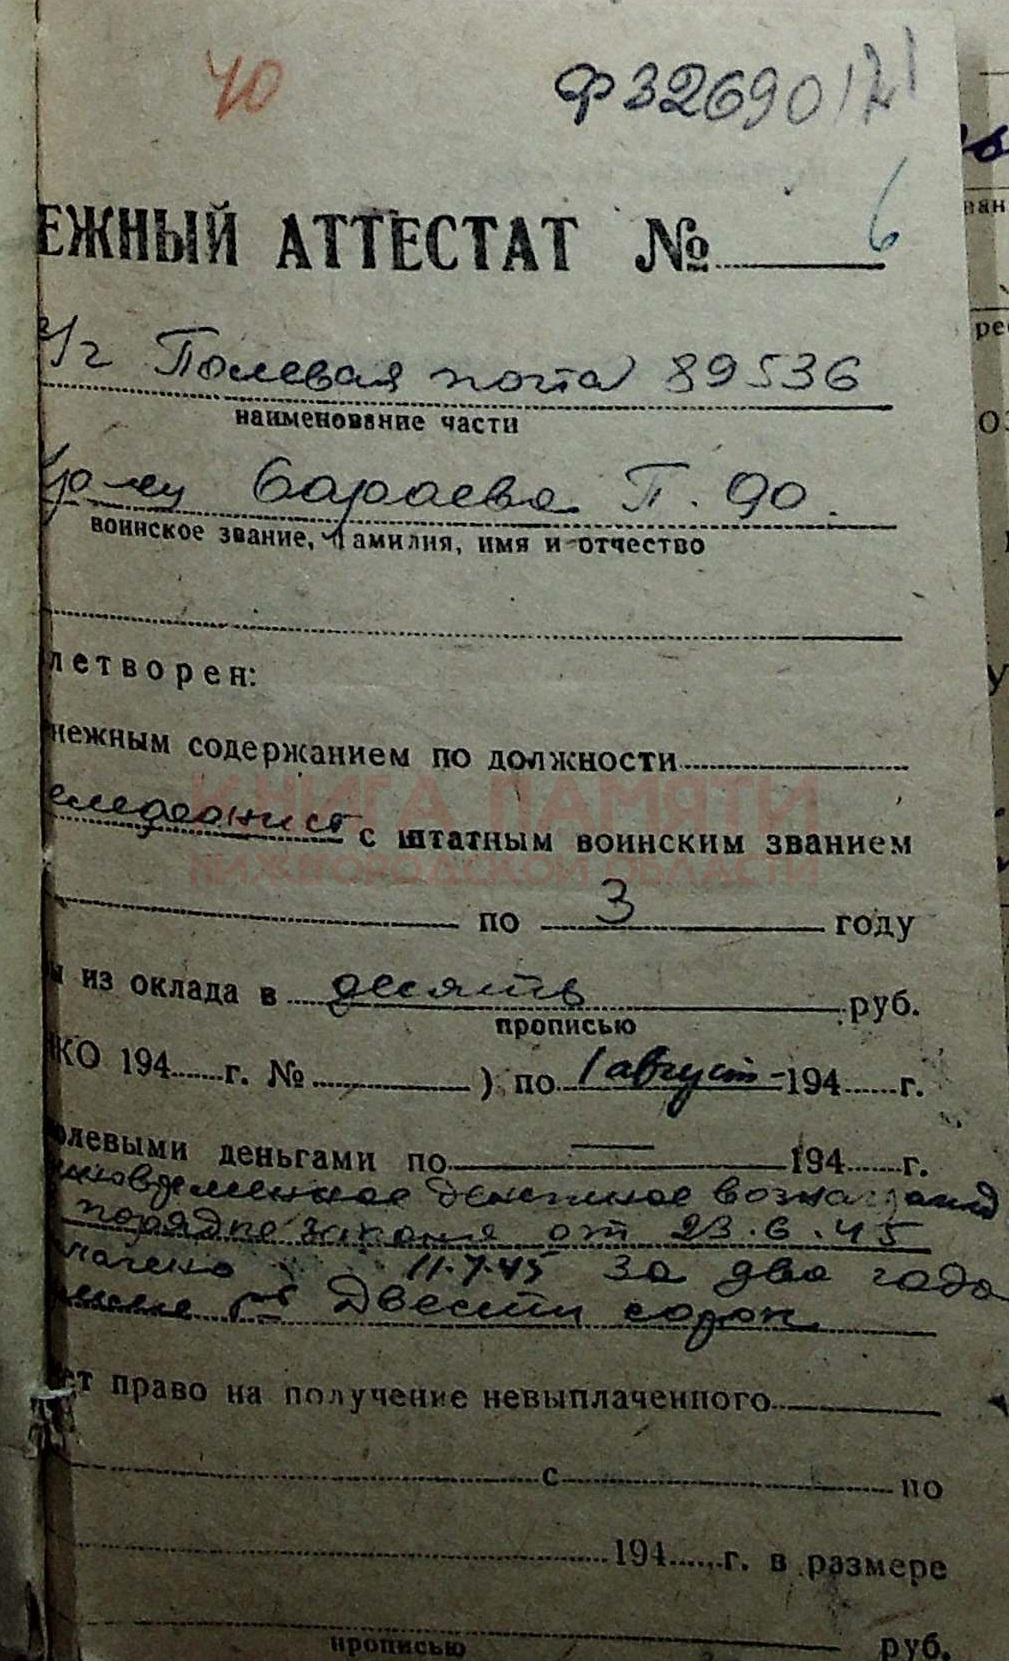 40
Ф32690/21
ЕЖНЫЙ АТТЕСТАТ № 6
Полевая почта 89536
наименование части
Бараева П. Ф.
воинское звание, фамилия, имя и отчество
летворен:
нежным содержанием по должности
с штатным воинским званием
КНИГА ПАМЯТИ
НИЖЕГОРОДСКОЙ ОБЛАСТИ
по 3 году
ы из оклада в десять руб.
прописью
КО 194 г. № ) по 1 август 194 г.
олевыми деньгами по — 194 г.
новременное денежное вознагражд
порядке закона от 23.6.45
11.7.45 за два года
Двести сорок
ет право на получение невыплаченного
с по
194 г. в размере
прописью руб.